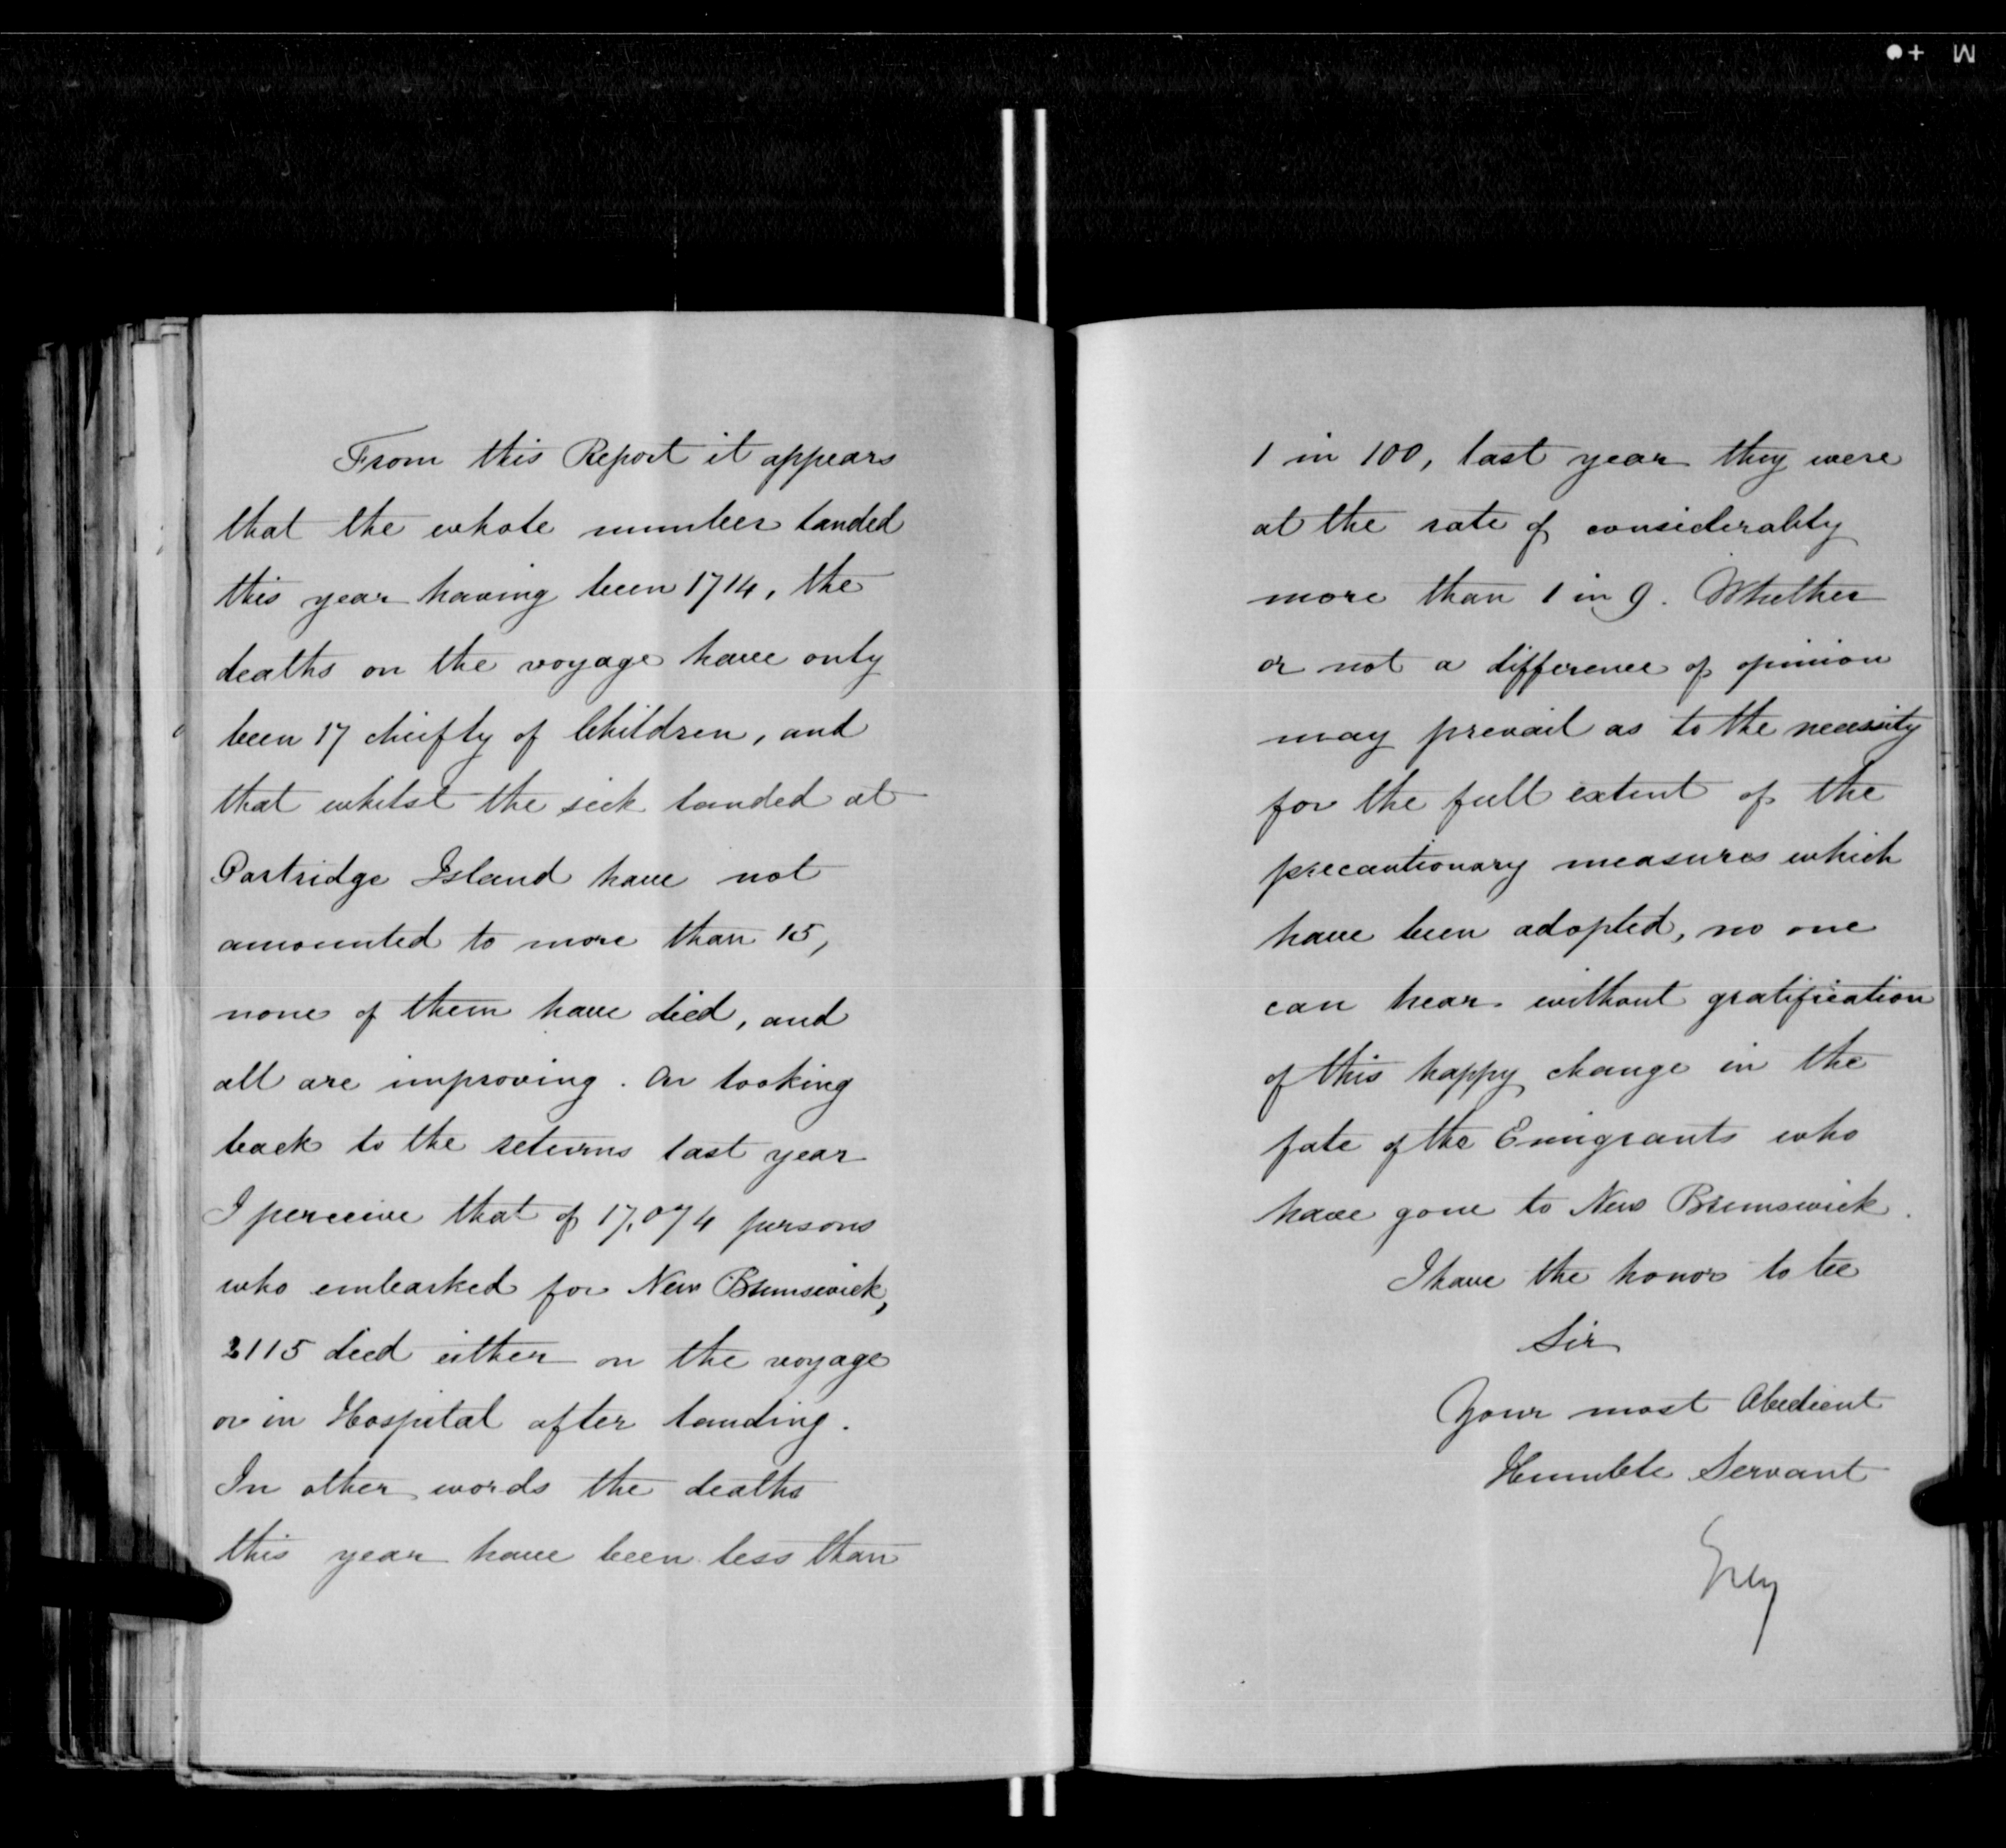 From this Report it appears
that the whole number landed
this year having been 1714, the
deaths on the voyage have only
been 17 cheifly of Children, and
that whilst the sick landed at
Partridge Island have not
amounted to more than 15,
none of them have died, and
all are improving. On looking
back to the returns last year
I perceive that of 17,074 persons
who embarked for New Brunswick,
2115 died either on the voyage
or in Hospital after landing.
In other words the deaths
this year have been less than
1 in 100, last year they were
at the rate of considerably
more than 1 in 9. Whether
or not a difference of opinion
may prevail as to the necessity
for the full extent of the
precautionary measures which
have been adopted, no one
can hear without gratification
of this happy change in the
fate of the Emigrants who
have gone to New Brunswick.
I have the honor to be
Sir
Your most Obedient
Humble Servant
Grey